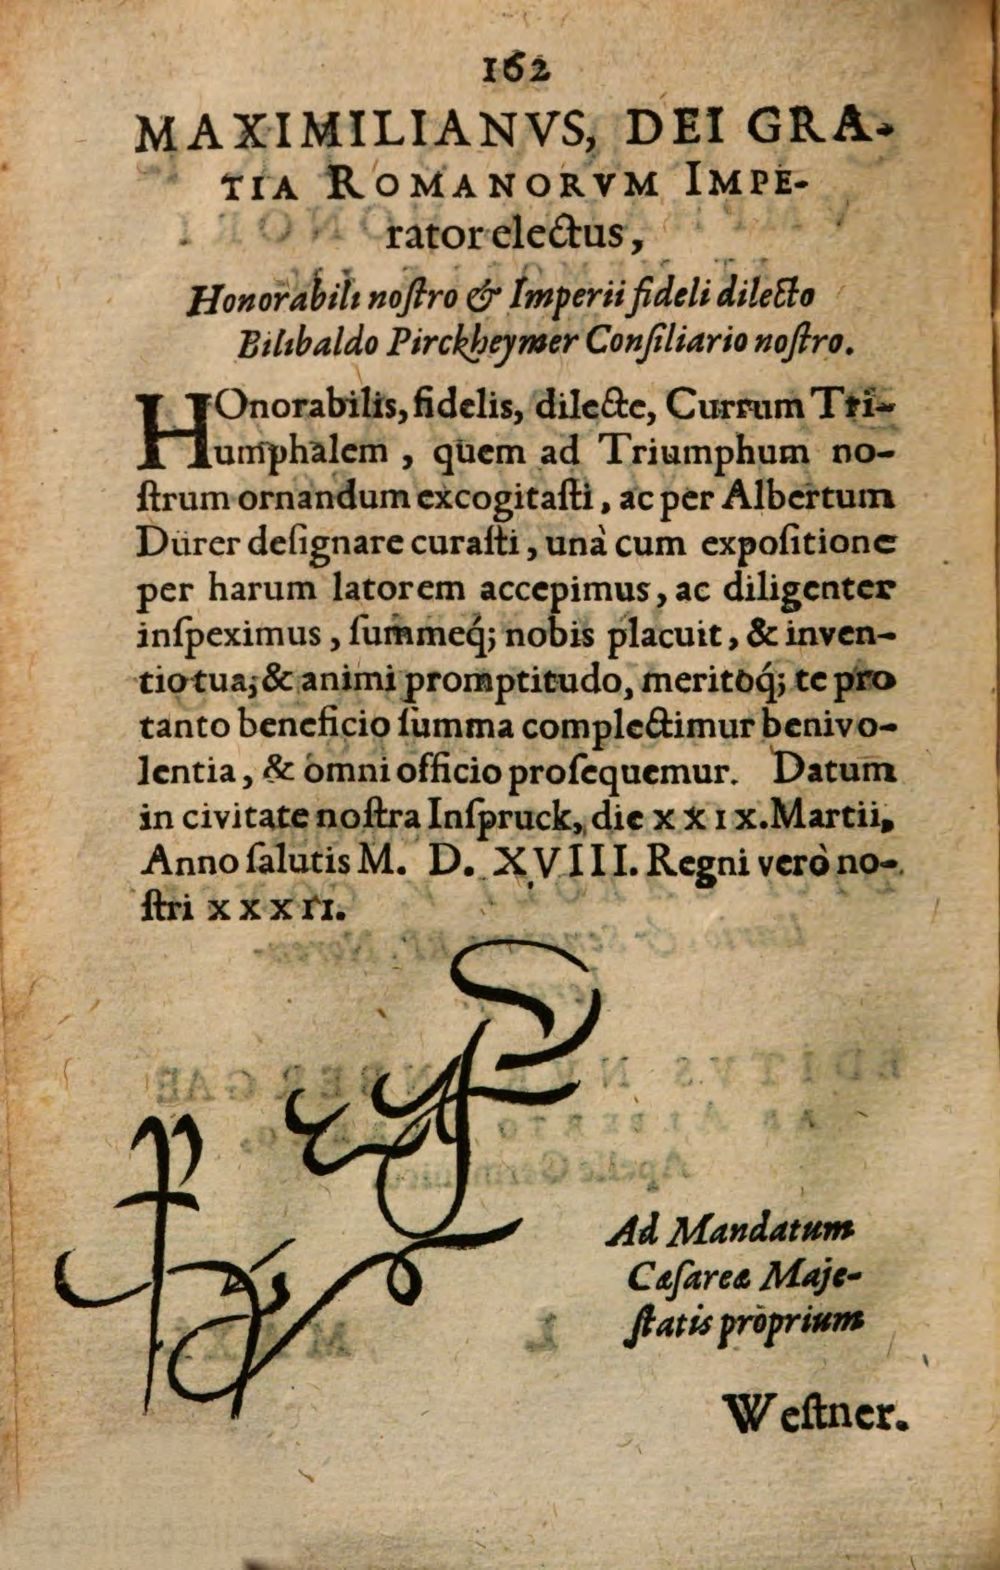 162
MAXIMILIANVS, DEI GRA-
TIA ROMANORVM IMPE-
rator electus,
Honorabili noſtro & Imperii fideli dilecto
Bilibaldo Pirckheymer Conſiliario noſtro.
HOnorabilis, fidelis, dilecte, Currum Tri-
umphalem, quem ad Triumphum no-
ſtrum ornandum excogitaſti, ac per Albertum
Dürer deſignare curaſti, unà cum expoſitione
per harum latorem accepimus, ac diligenter
inſpeximus, ſummeq́; nobis placuit, & inven-
tio tua, & animi promptitudo, meritoq́; te pro
tanto beneficio ſumma complectimur benivo-
lentia, & omni officio proſequemur. Datum
in civitate noſtra Inſpruck, die XXIX. Martii,
Anno ſalutis M. D. XVIII. Regni verò no-
ſtri XXXII.
Ad Mandatum
Cæſareæ Maje-
ſtatis proprium
Weſtner.